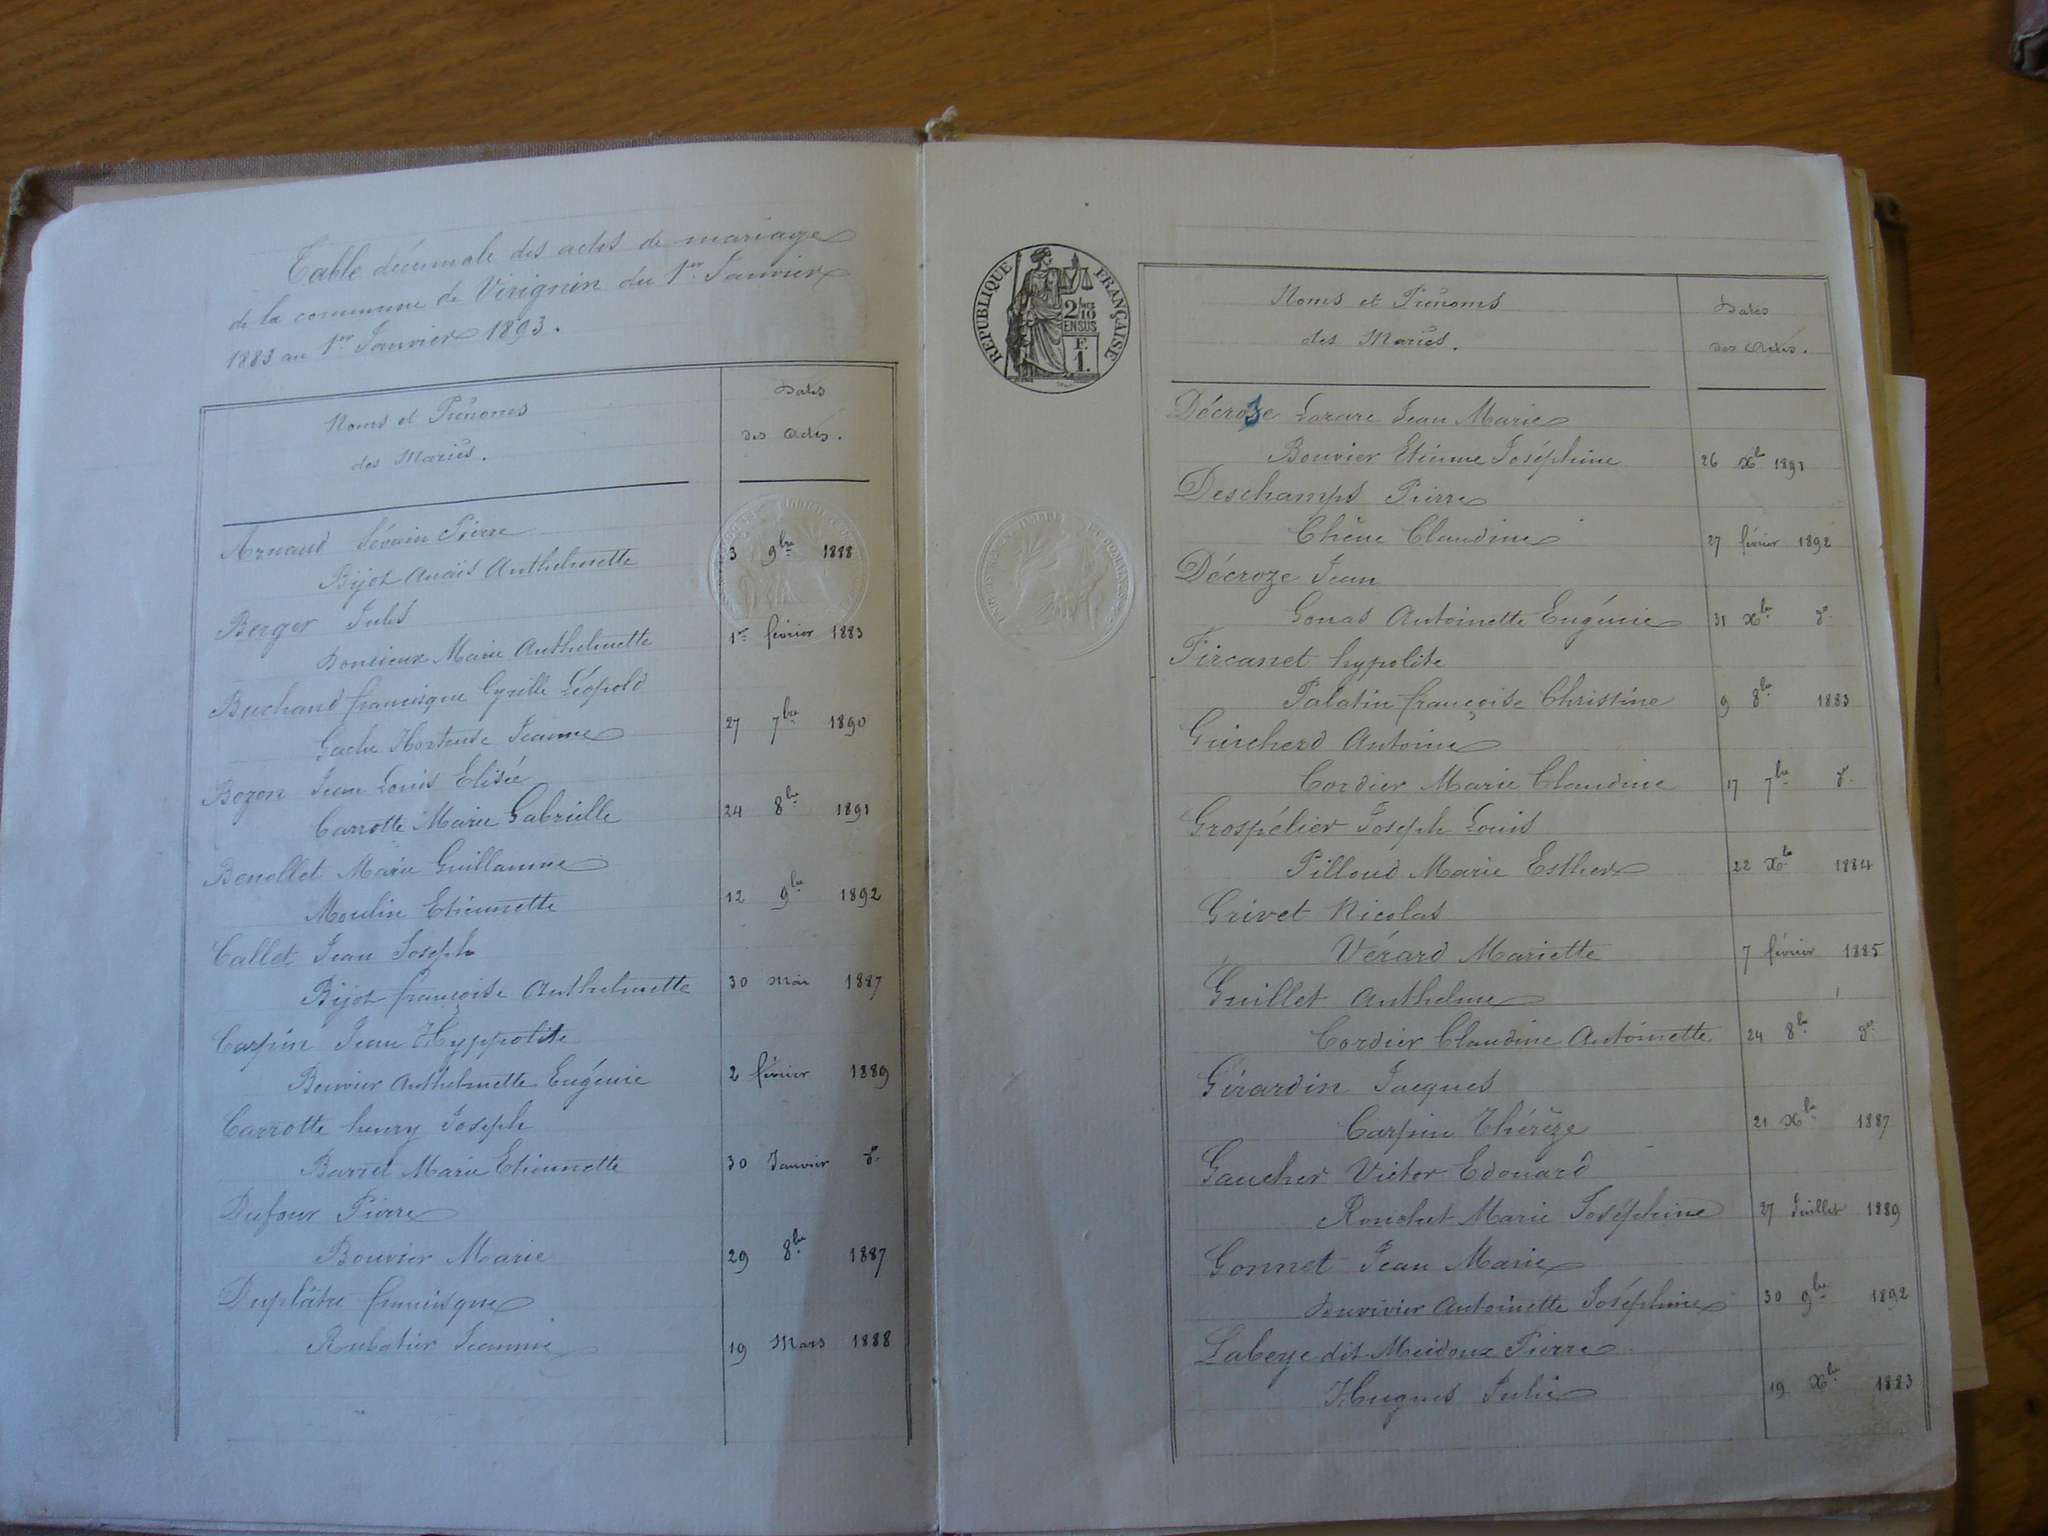 Table décennale des actes de mariage
de la commune de Virignin du 1er Janvier
1883 au 1er Janvier 1893.
Noms et Prénoms
des Mariés.
Dates
des Actes.
Arnaud Sévérin Pierre
Bijot Anaïs Anthelmette 3 9bre 1888
Berger Jules
Donsieux Marie Anthelmette 1er février 1883
Buchand francisque Cyrille Léopold
Gache Hortense Jeanne 27 7bre 1890
Bozon Jean Louis Elisée
Carrotte Marie Gabrielle 24 8bre 1891
Benollet Marie Guillaume
Moulin Etiennette 12 9bre 1892
Callet Jean Joseph
Bijot françoise Anthelmette 30 Mai 1887
Carpin Jean Hyppolite
Bouvier Anthelmette Eugénie 2 février 1889
Carrotte henry Joseph
Barret Marie Etiennette 30 Janvier do
Dufour Pierre
Bouvier Marie 29 8bre 1887
Duplâtre francisque
Rubatier Jeannie 19 Mars 1888
REPUBLIQUE FRANÇAISE
2/10
EN SUS
F.
1.
Noms et Prénoms
des Mariés.
Dates
des Actes.
Décroze Lazare Jean Marie
Bouvier Etienne Joséphine 26 Xbre 1891
Deschamps Pierre
Chêne Claudine 27 février 1892
Décroze Jean
Gonas Antoinette Eugénie 31 Xbre do
Fircanet hypolite
Palatin françoise Christine 9 8bre 1883
Guicherd Antoine
Cordier Marie Claudine 17 7bre do
Grospélier Joseph Louis
Pilloud Marie Esther 22 Xbre 1884
Grivet Nicolas
Vérard Mariette 7 février 1885
Guillet Anthelme
Cordier Claudine Antoinette 24 8bre do
Girardin Jacques
Carpin Thérèze 21 Xbre 1887
Gaucher Victor Edouard
Ronchet Marie Joséphine 27 Juillet 1889
Gonnet Jean Marie
Duvivier Antoinette Joséphine 30 9bre 1892
Labeye dit Meidoux Pierre
Hugues Julie 19 Xbre 1883